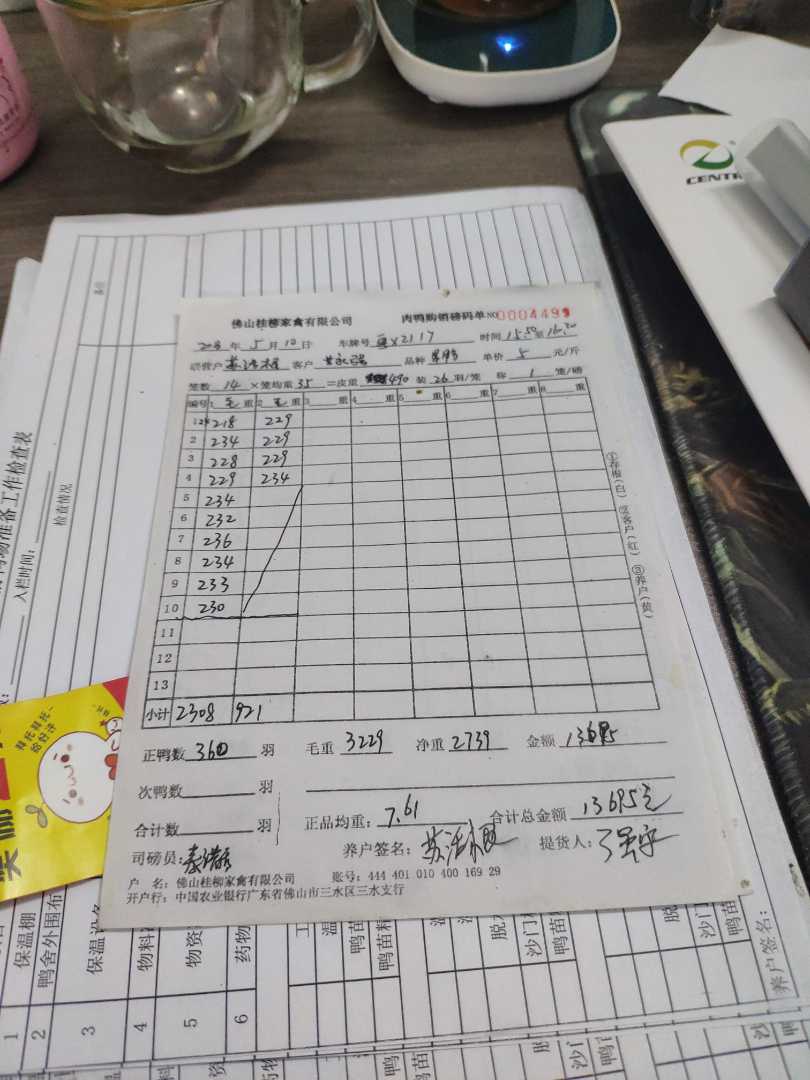 CENTR
佛山桂柳家禽有限公司 肉鸭购销磅码单 NO 0004499
5月10日 车牌号 粤X2117 时间 15:50至16:30
客户 品种 单价 5 元/斤
笼数 14 ×笼均重 35 =皮重 490 装 26 羽/笼 称 1 笼/磅
编号 1 毛 重 2 毛 重 3 重 4 重 5 重 6 重 7 重 8 重
1 218 229
2 234 229
3 228 229
4 229 234
5 234
6 232
7 236
8 234
9 233
10 230
11
12
13
小计 2308 921
正鸭数 360 羽 毛重 3229 净重 2739 金额 13695
次鸭数 羽
合计数 羽 正品均重: 7.61 合计总金额 13695元
司磅员: 养户签名: 提货人:
户 名: 佛山桂柳家禽有限公司 账号: 444 401 010 400 169 29
开户行: 中国农业银行广东省佛山市三水区三水支行
①存根(白) ②客户(红) ③养户(黄)
备注
准备工作检查表
入栏时间:
检查情况
拜托拜托
给好评
1 保温棚
2 鸭舍外围布
3 保温设备
4 物料
5 物资
6 药物
鸭苗
鸭苗精
沙门
鸭苗
养户签名: